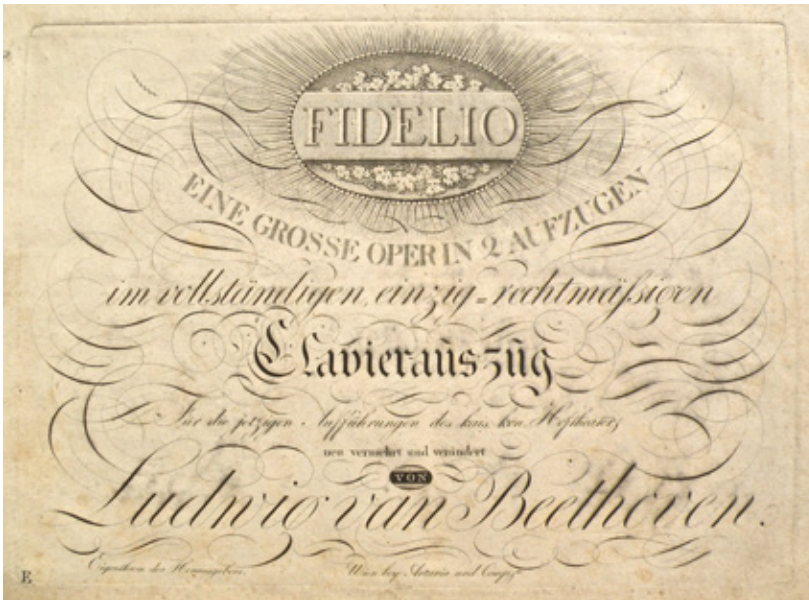 FIDELIO
EINE GROSSE OPER IN 2 AUFZUGEN
im vollständigen, einzig=rechtmäßigen
Clavieraūszūg
Für die jetzigen Aufführungen des kais. kön. Hoftheaters
neu vermehrt und verändert
VON
Ludwig van Beethoven.
Eigenthum der Herausgeber.
Wien bey Artaria und Comp.
E